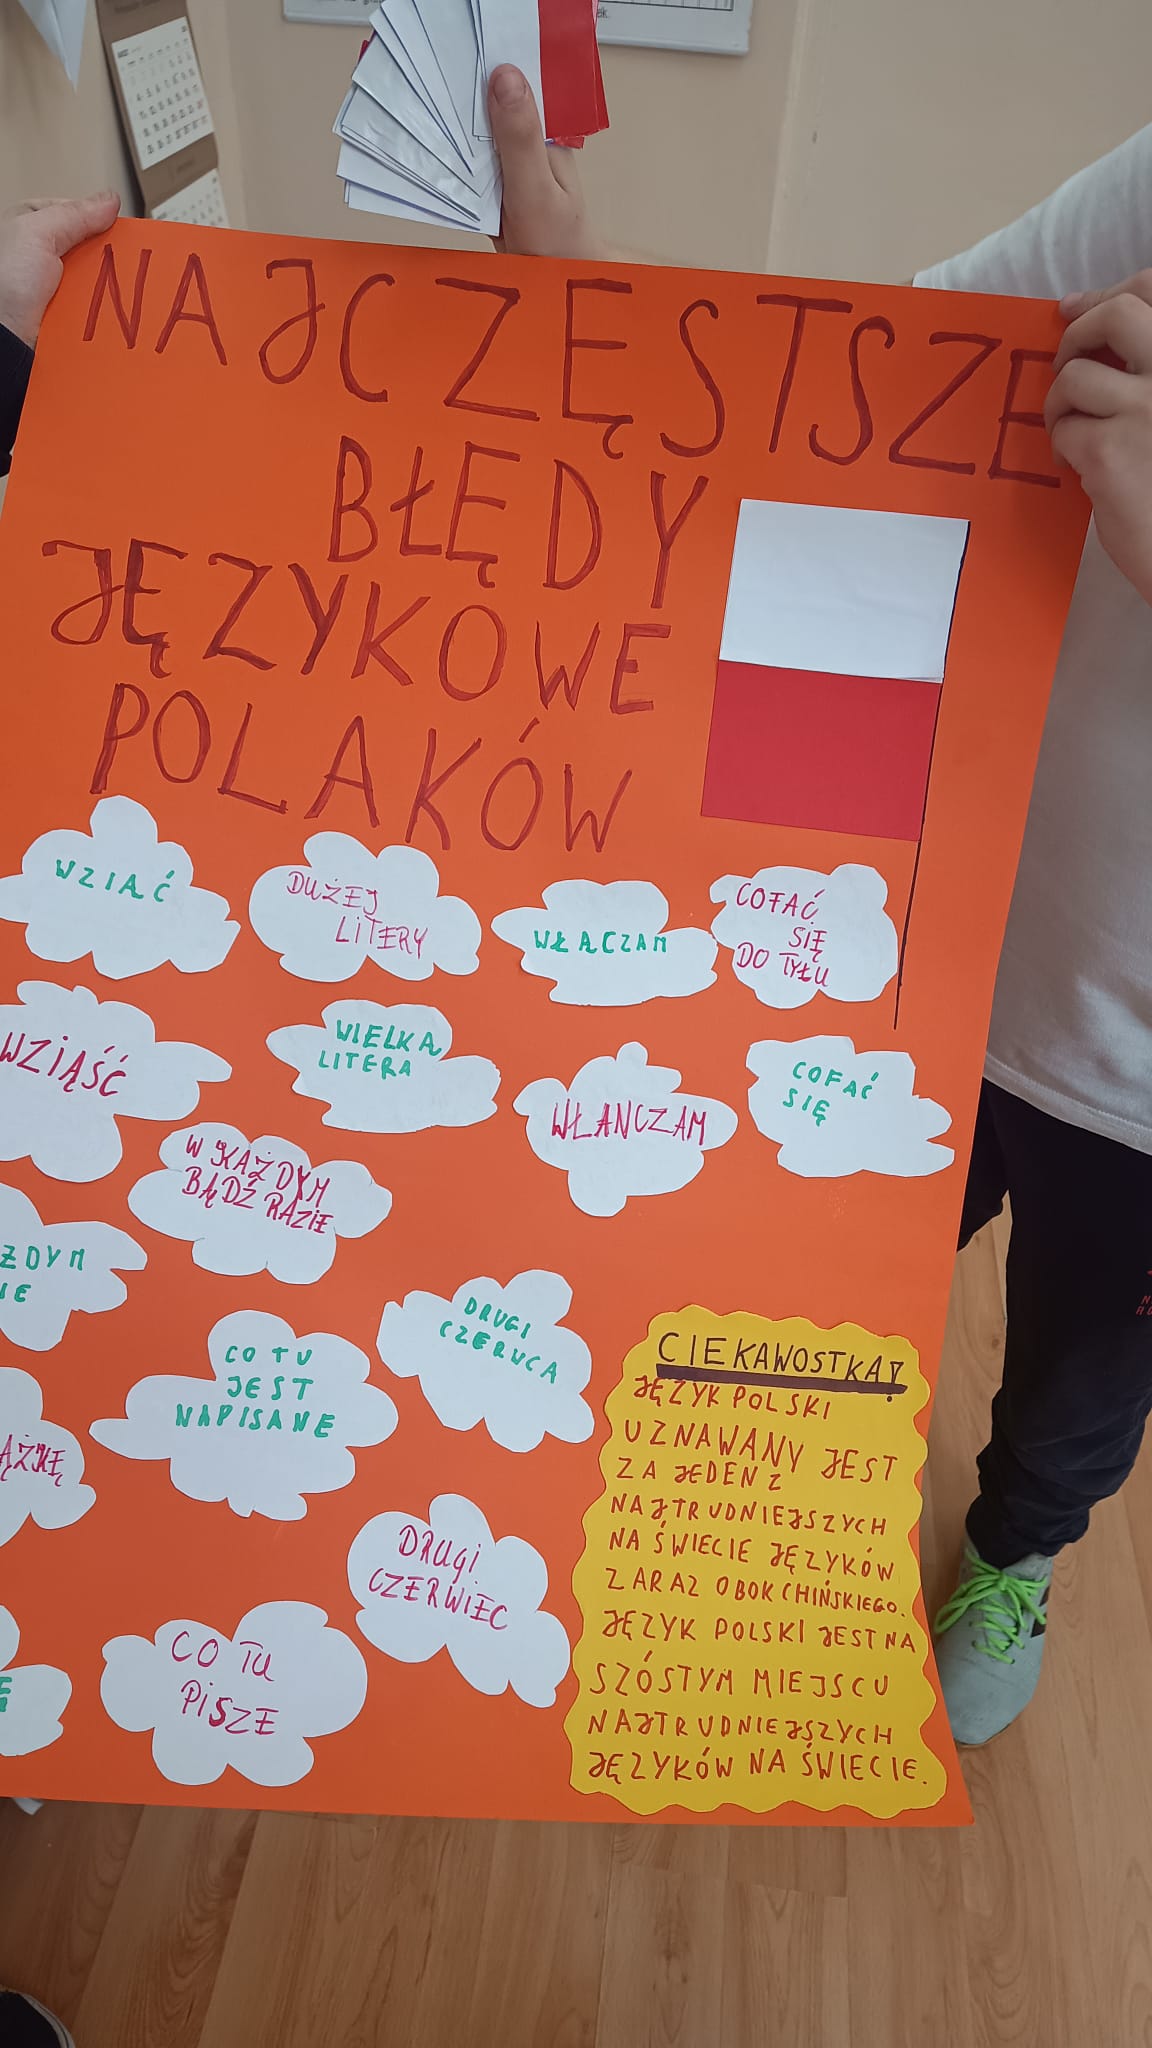 NAJCZĘSTSZE
BŁĘDY
JĘZYKOWE
POLAKÓW
WZIĄĆ
DUŻEJ
LITERY
WŁĄCZAM
COFAĆ
SIĘ
DO TYŁU
WZIĄŚĆ
WIELKĄ
LITERA
WŁANCZAM
COFAĆ
SIĘ
W KAŻDYM
BĄDŹ RAZIE
ŻDYM
IE
DRUGI
CZERWCA
CO TU
JEST
NAPISANE
ĄŻKĘ
DRUGI
CZERWIEC
CO TU
PISZE
Ę
CIEKAWOSTKA!
JĘZYK POLSKI
UZNAWANY JEST
ZA JEDEN Z
NAJTRUDNIEJSZYCH
NA ŚWIECIE JĘZYKÓW
ZARAZ OBOK CHIŃSKIEGO.
JĘZYK POLSKI JEST NA
SZÓSTYM MIEJSCU
NAJTRUDNIEJSZYCH
JĘZYKÓW NA ŚWIECIE.